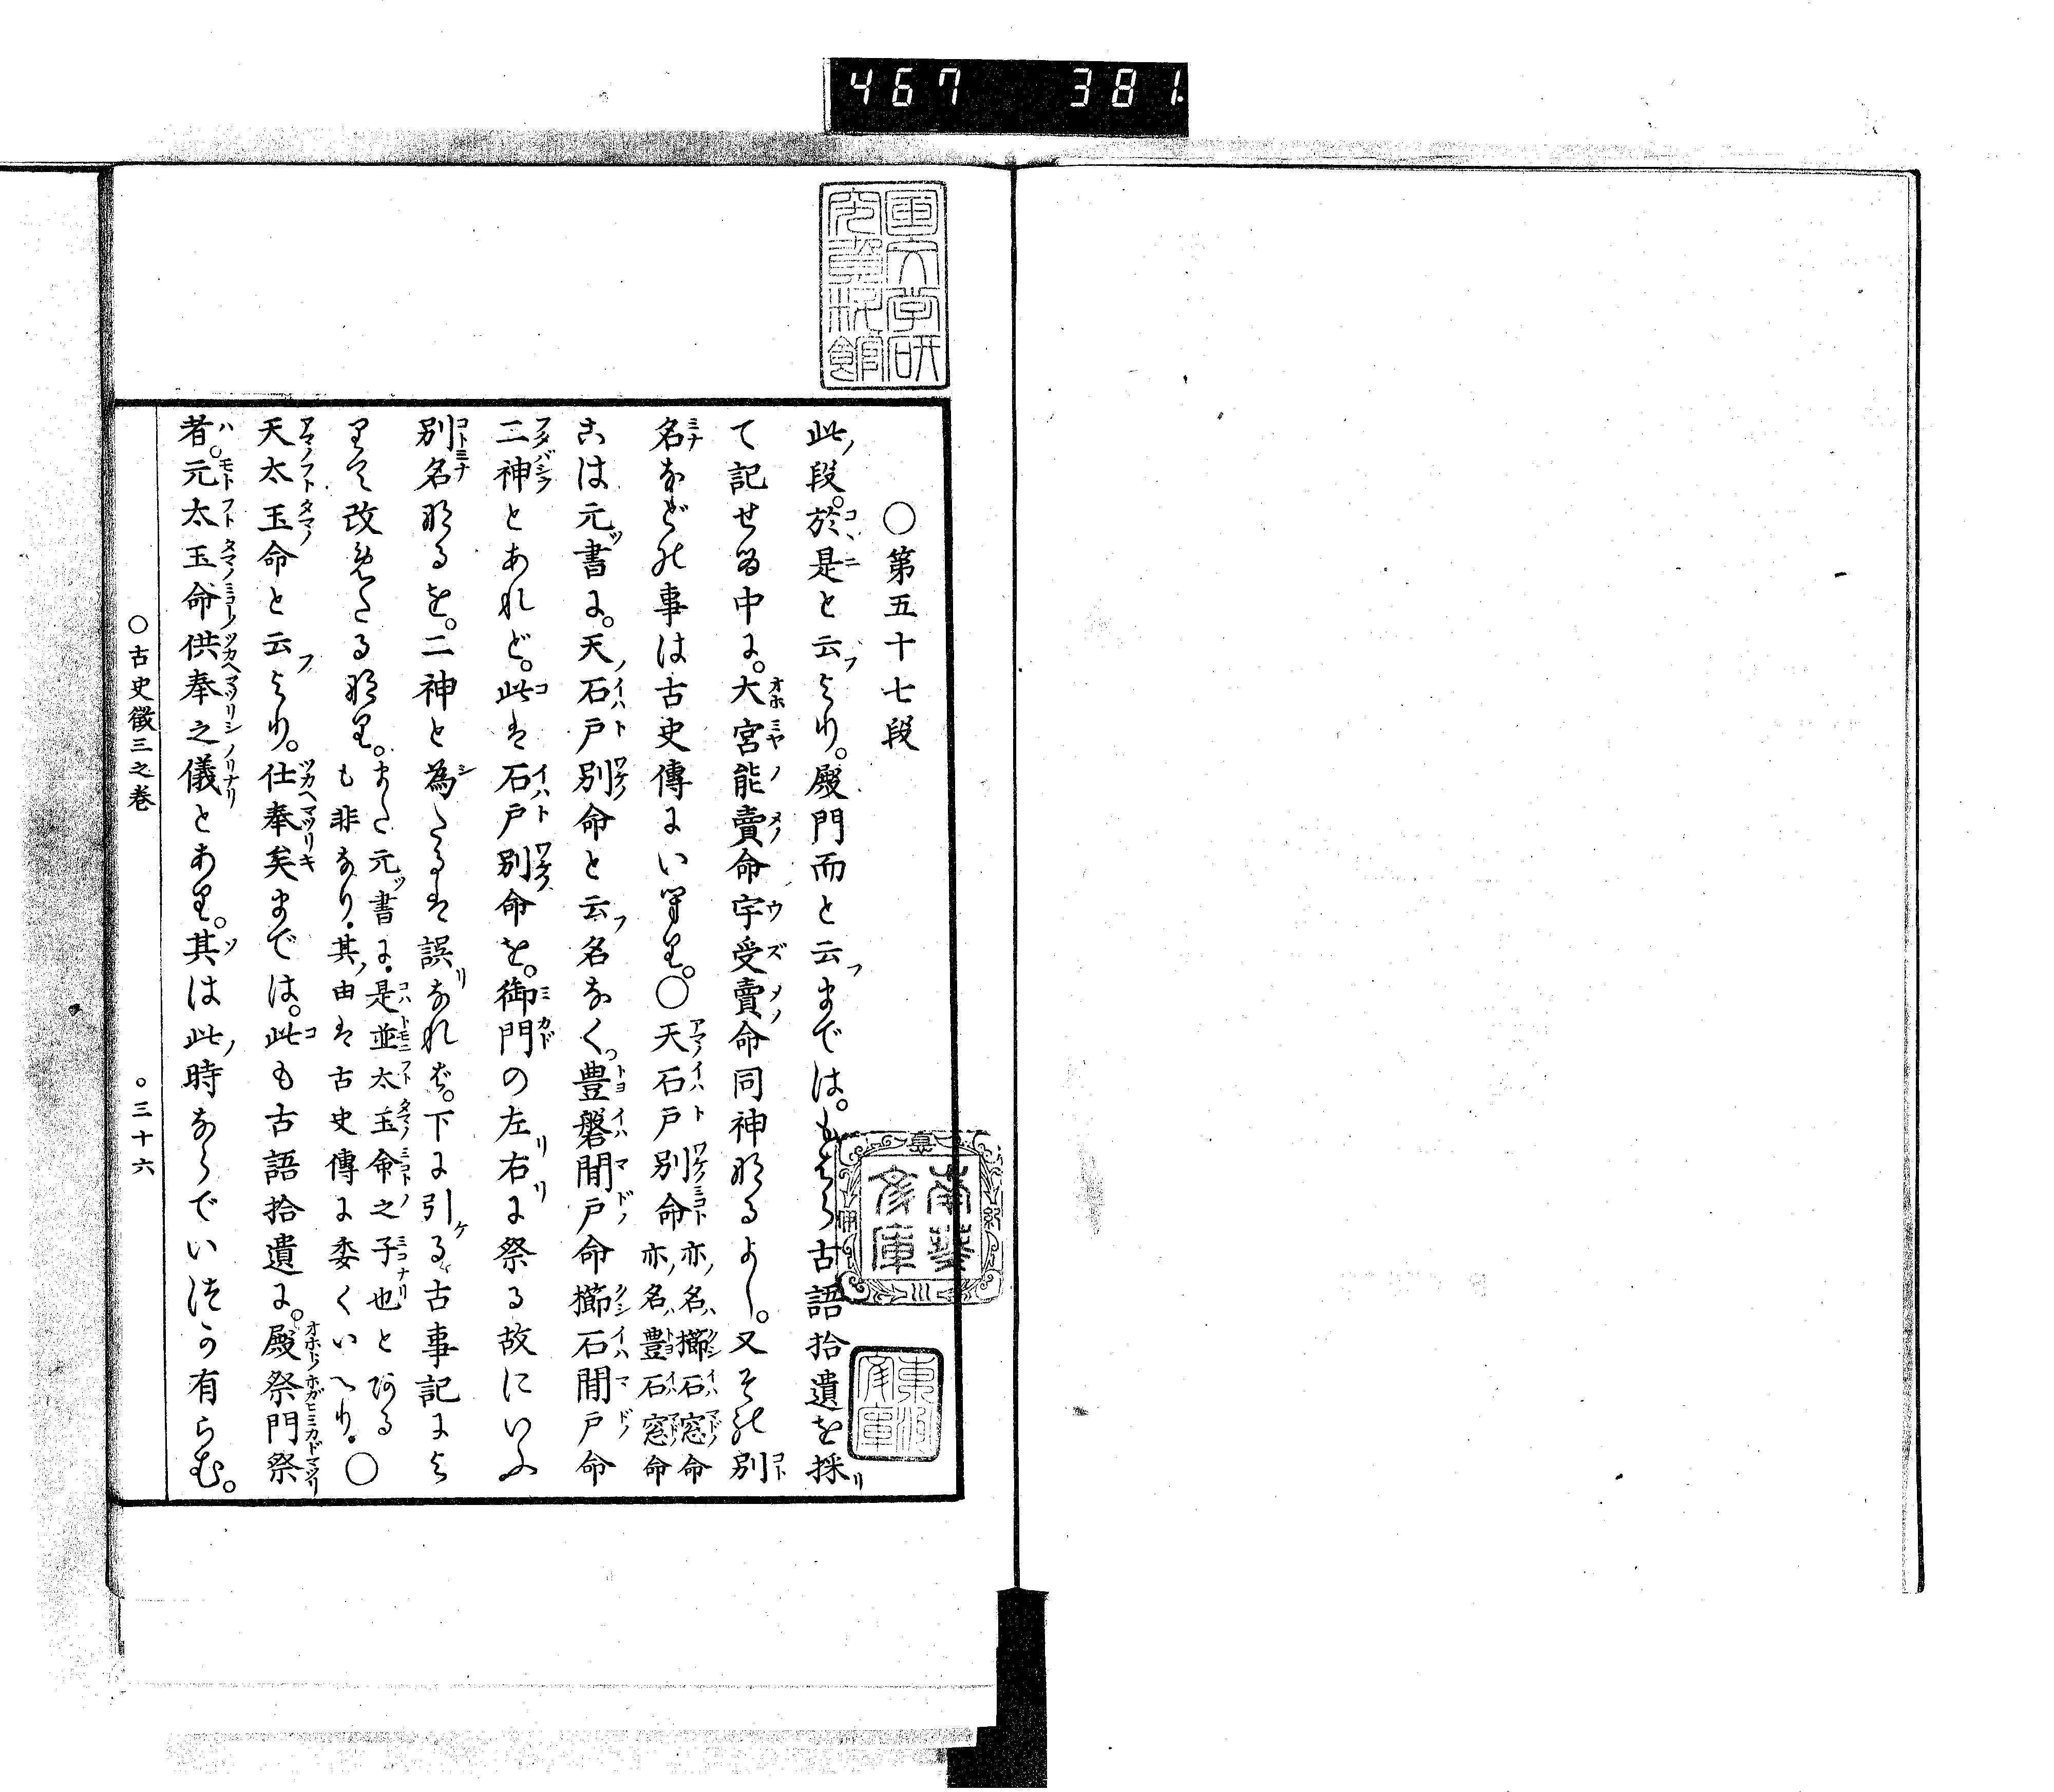 467 381
国文学研
究資料館
○第五十七段
此ノ段。於是と云フより。殿門而と云フまでは。もはら古語拾遺を採リ
て記せる中に。大宮能賣命宇受賣命同神なるよし。又その別
名などの事は古史傳にいへり。○天石戸別命亦ノ名ハ櫛石窓命亦ノ名ハ豊石窓命
こは元ツ書に。天ノ石戸別命と云フ名なく。豊磐間戸命櫛石間戸命
二神とあれど。此は石戸別命を。御門の左リ右リに祭る故にいふ
別名なるを。二神と為たるは誤リなれば。下に引ケる古事記によ
りて改めたるなり。また元ツ書に。是並太玉命之子也とあるも非なり。其ノ由は古史傳に委くいへり。○
天太玉命と云フより。仕奉矣までは。此も古語拾遺に。殿祭門祭
者。元太玉命供奉之儀とあり。其は此ノ時ならでいつか有らむ。
○古史徴三之巻
○三十六
南葵
文庫